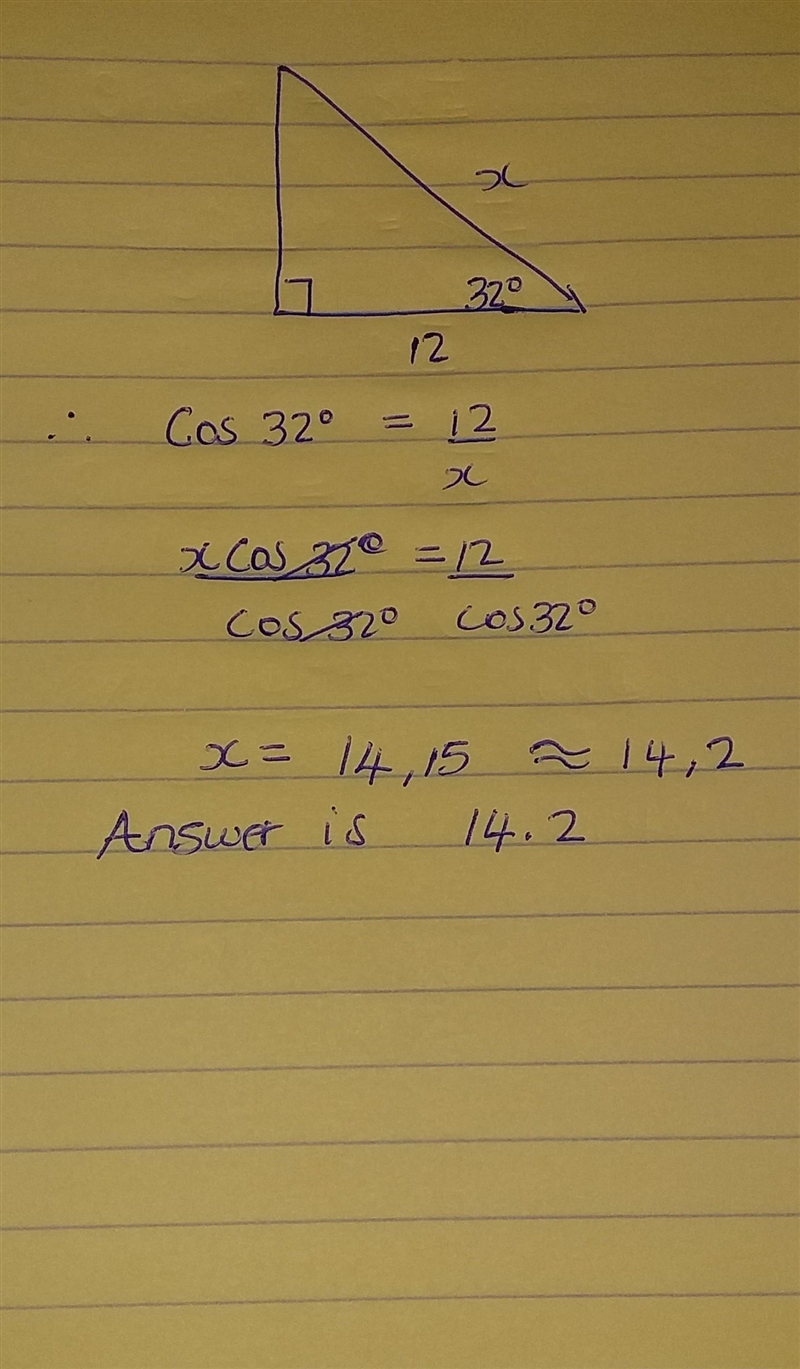 x
32°
12
∴ Cos 32° = 12/x
x Cos 32° = 12
cos 32° cos 32°
x = 14,15 ≈ 14,2
Answer is 14.2